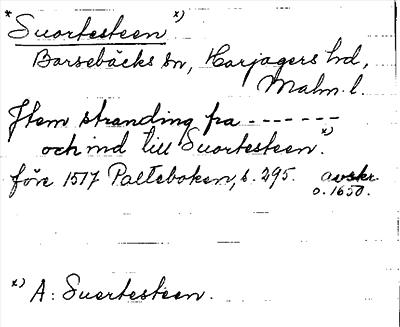 * Suortesteen *)
Barsebäcks sn, Harjagers hd,
Malm. l.
Jtem stranding fra -------
och ind till Suortesteen. *)
före 1517 Palteboken, s. 295. avskr.
o. 1650.
*) A: Suertesteen.